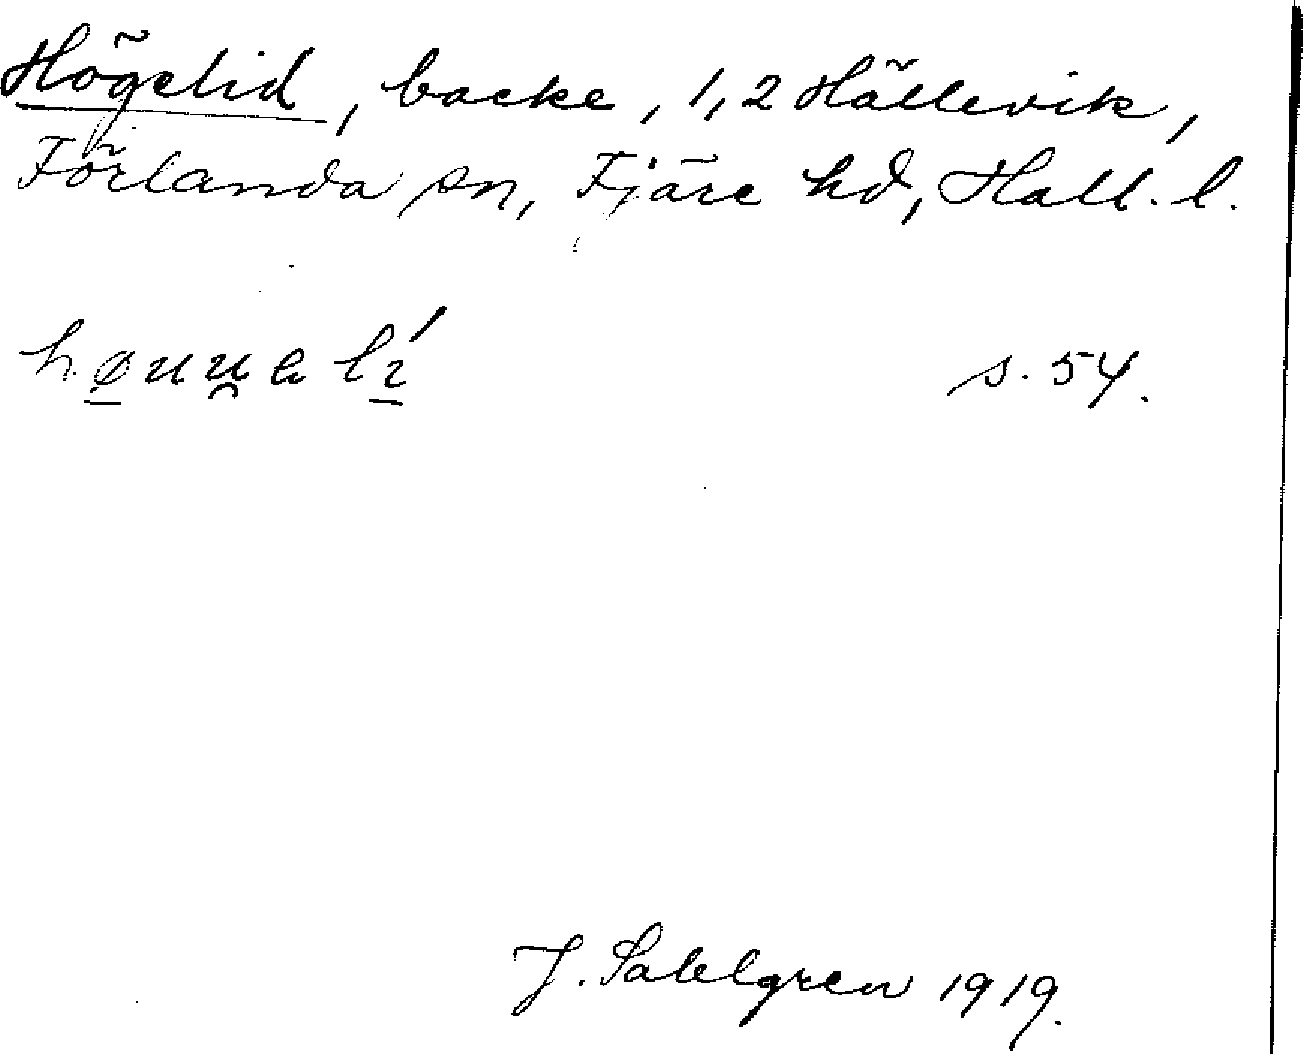 Högelid, backe, 1,2 Hällevik,
Förlanda sn, Fjäre hd, Hall. l.
s. 54.
J. Sahlgren 1919.